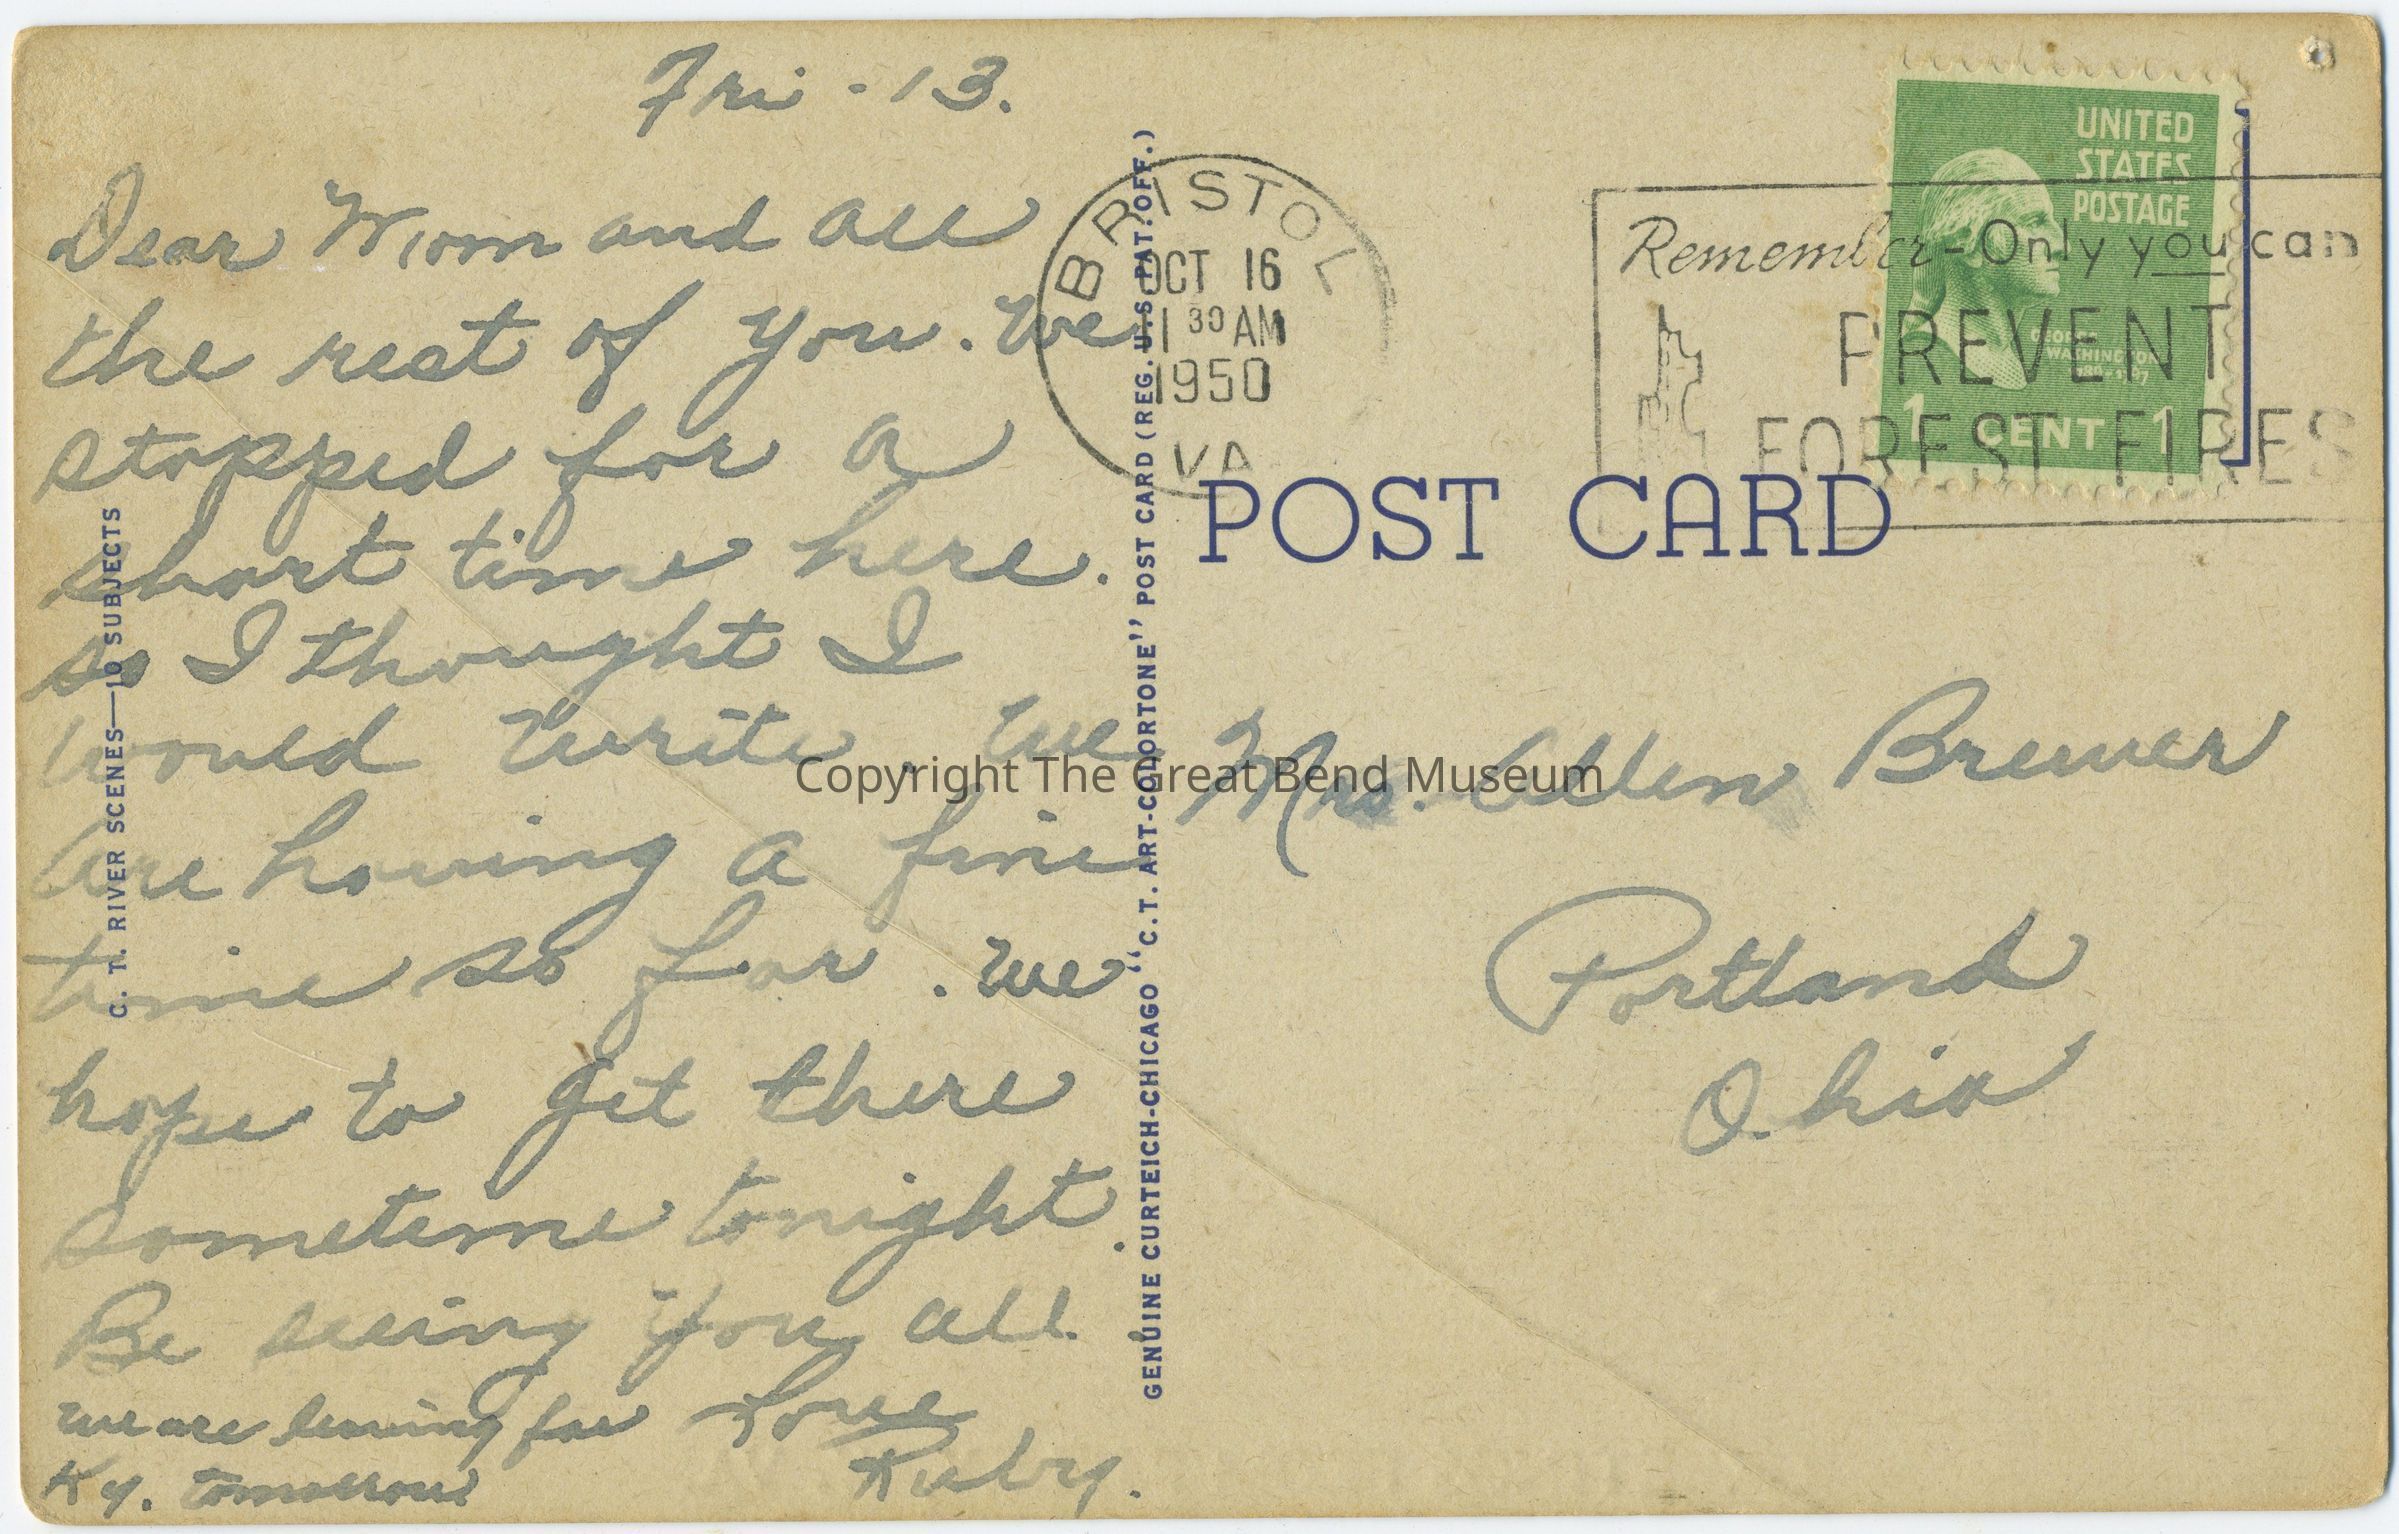 Fri - 13.
Dear Mom and all
the rest of you. We
stopped for a
short time here.
so I thought I
would write. We
are having a fine
time so far. We
hope to get there
sometime tonight.
Be seeing you all.
we are leaving for
Ky. tomorrow
Love
Ruby.
C. T. RIVER SCENES—10 SUBJECTS
GENUINE CURTEICH-CHICAGO "C.T. ART-COLORTONE" POST CARD (REG. U.S. PAT. OFF.)
BRISTOL
OCT 16
30 AM
1950
VA
Remember-Only you can
PREVENT
FOREST FIRES
UNITED
STATES
POSTAGE
GEORGE
WASHINGTON
1 CENT 1
POST CARD
Mrs. Allen Brewer
Portland
Ohio
Copyright The Great Bend Museum